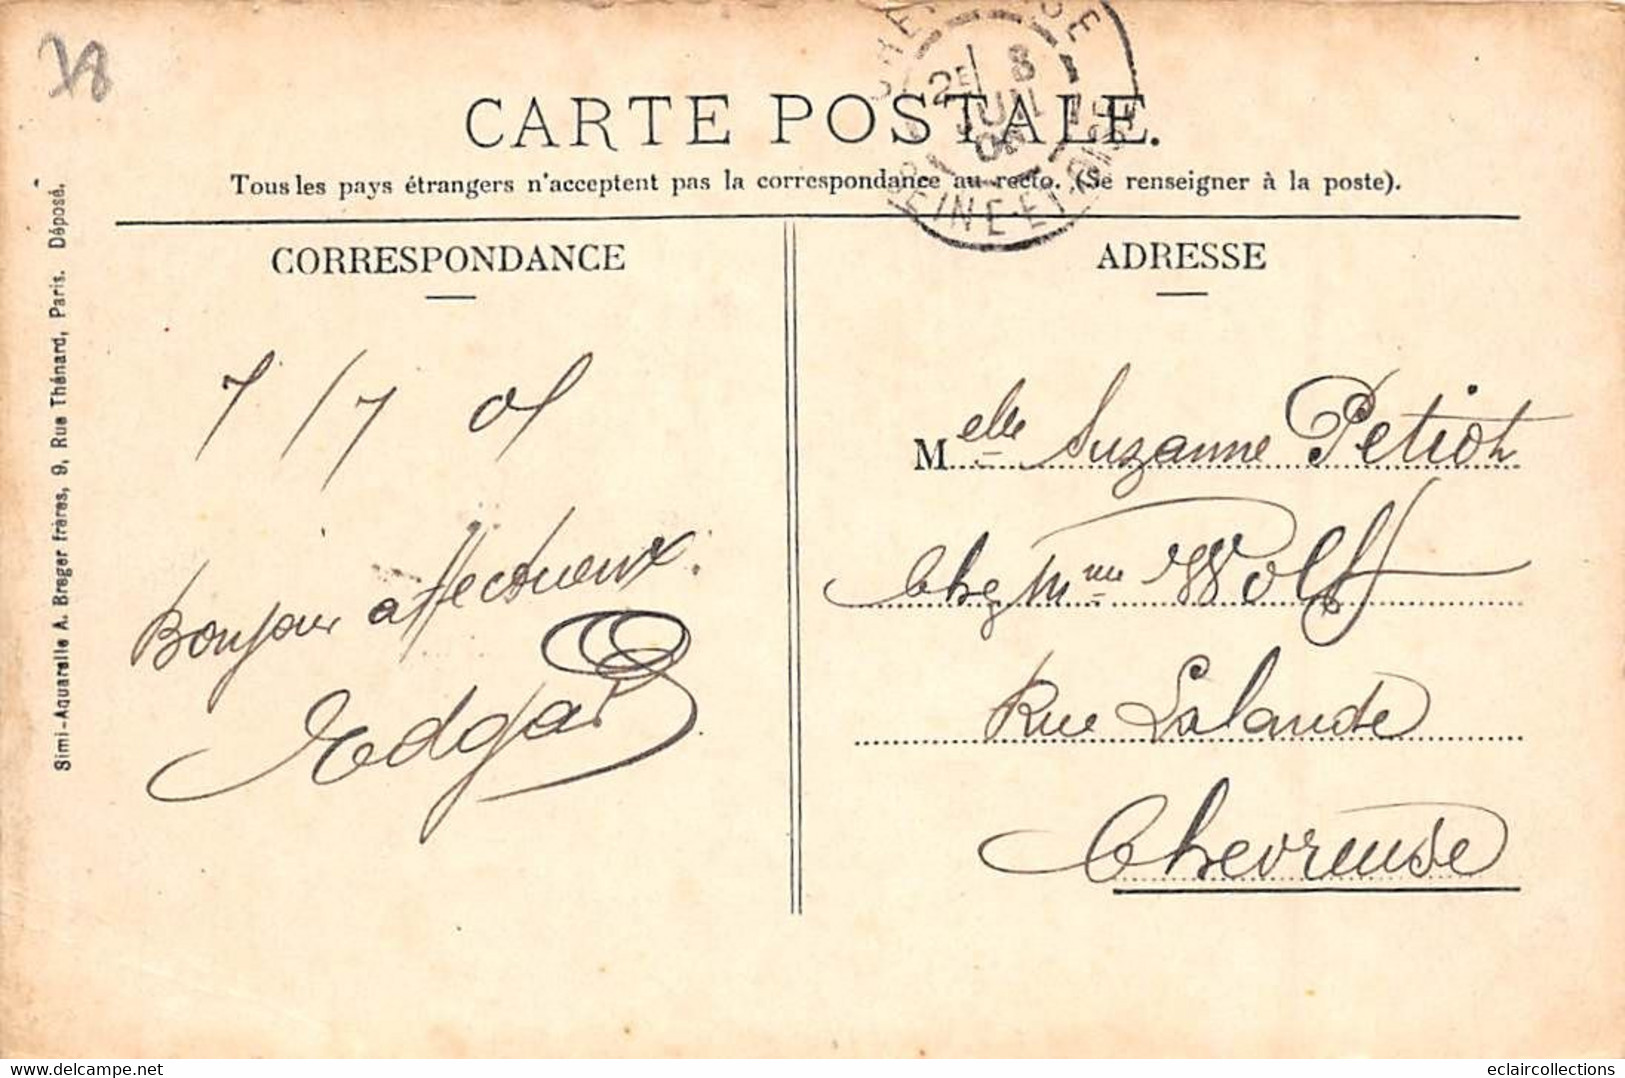 78
CARTE POSTALE.
Tous les pays étrangers n'acceptent pas la correspondance au recto. (Se renseigner à la poste).
CORRESPONDANCE
7/7 05
Bonjour affectueux.
Edgar
ADRESSE
Melle Suzanne Petiot
Chez Mme Wolff
Rue Lalande
Chevreuse
Simi-Aquarelle A. Breger frères, 9, Rue Thénard, Paris. Déposé.
2E 8
SEINE-ET-OISE
eclaircollections